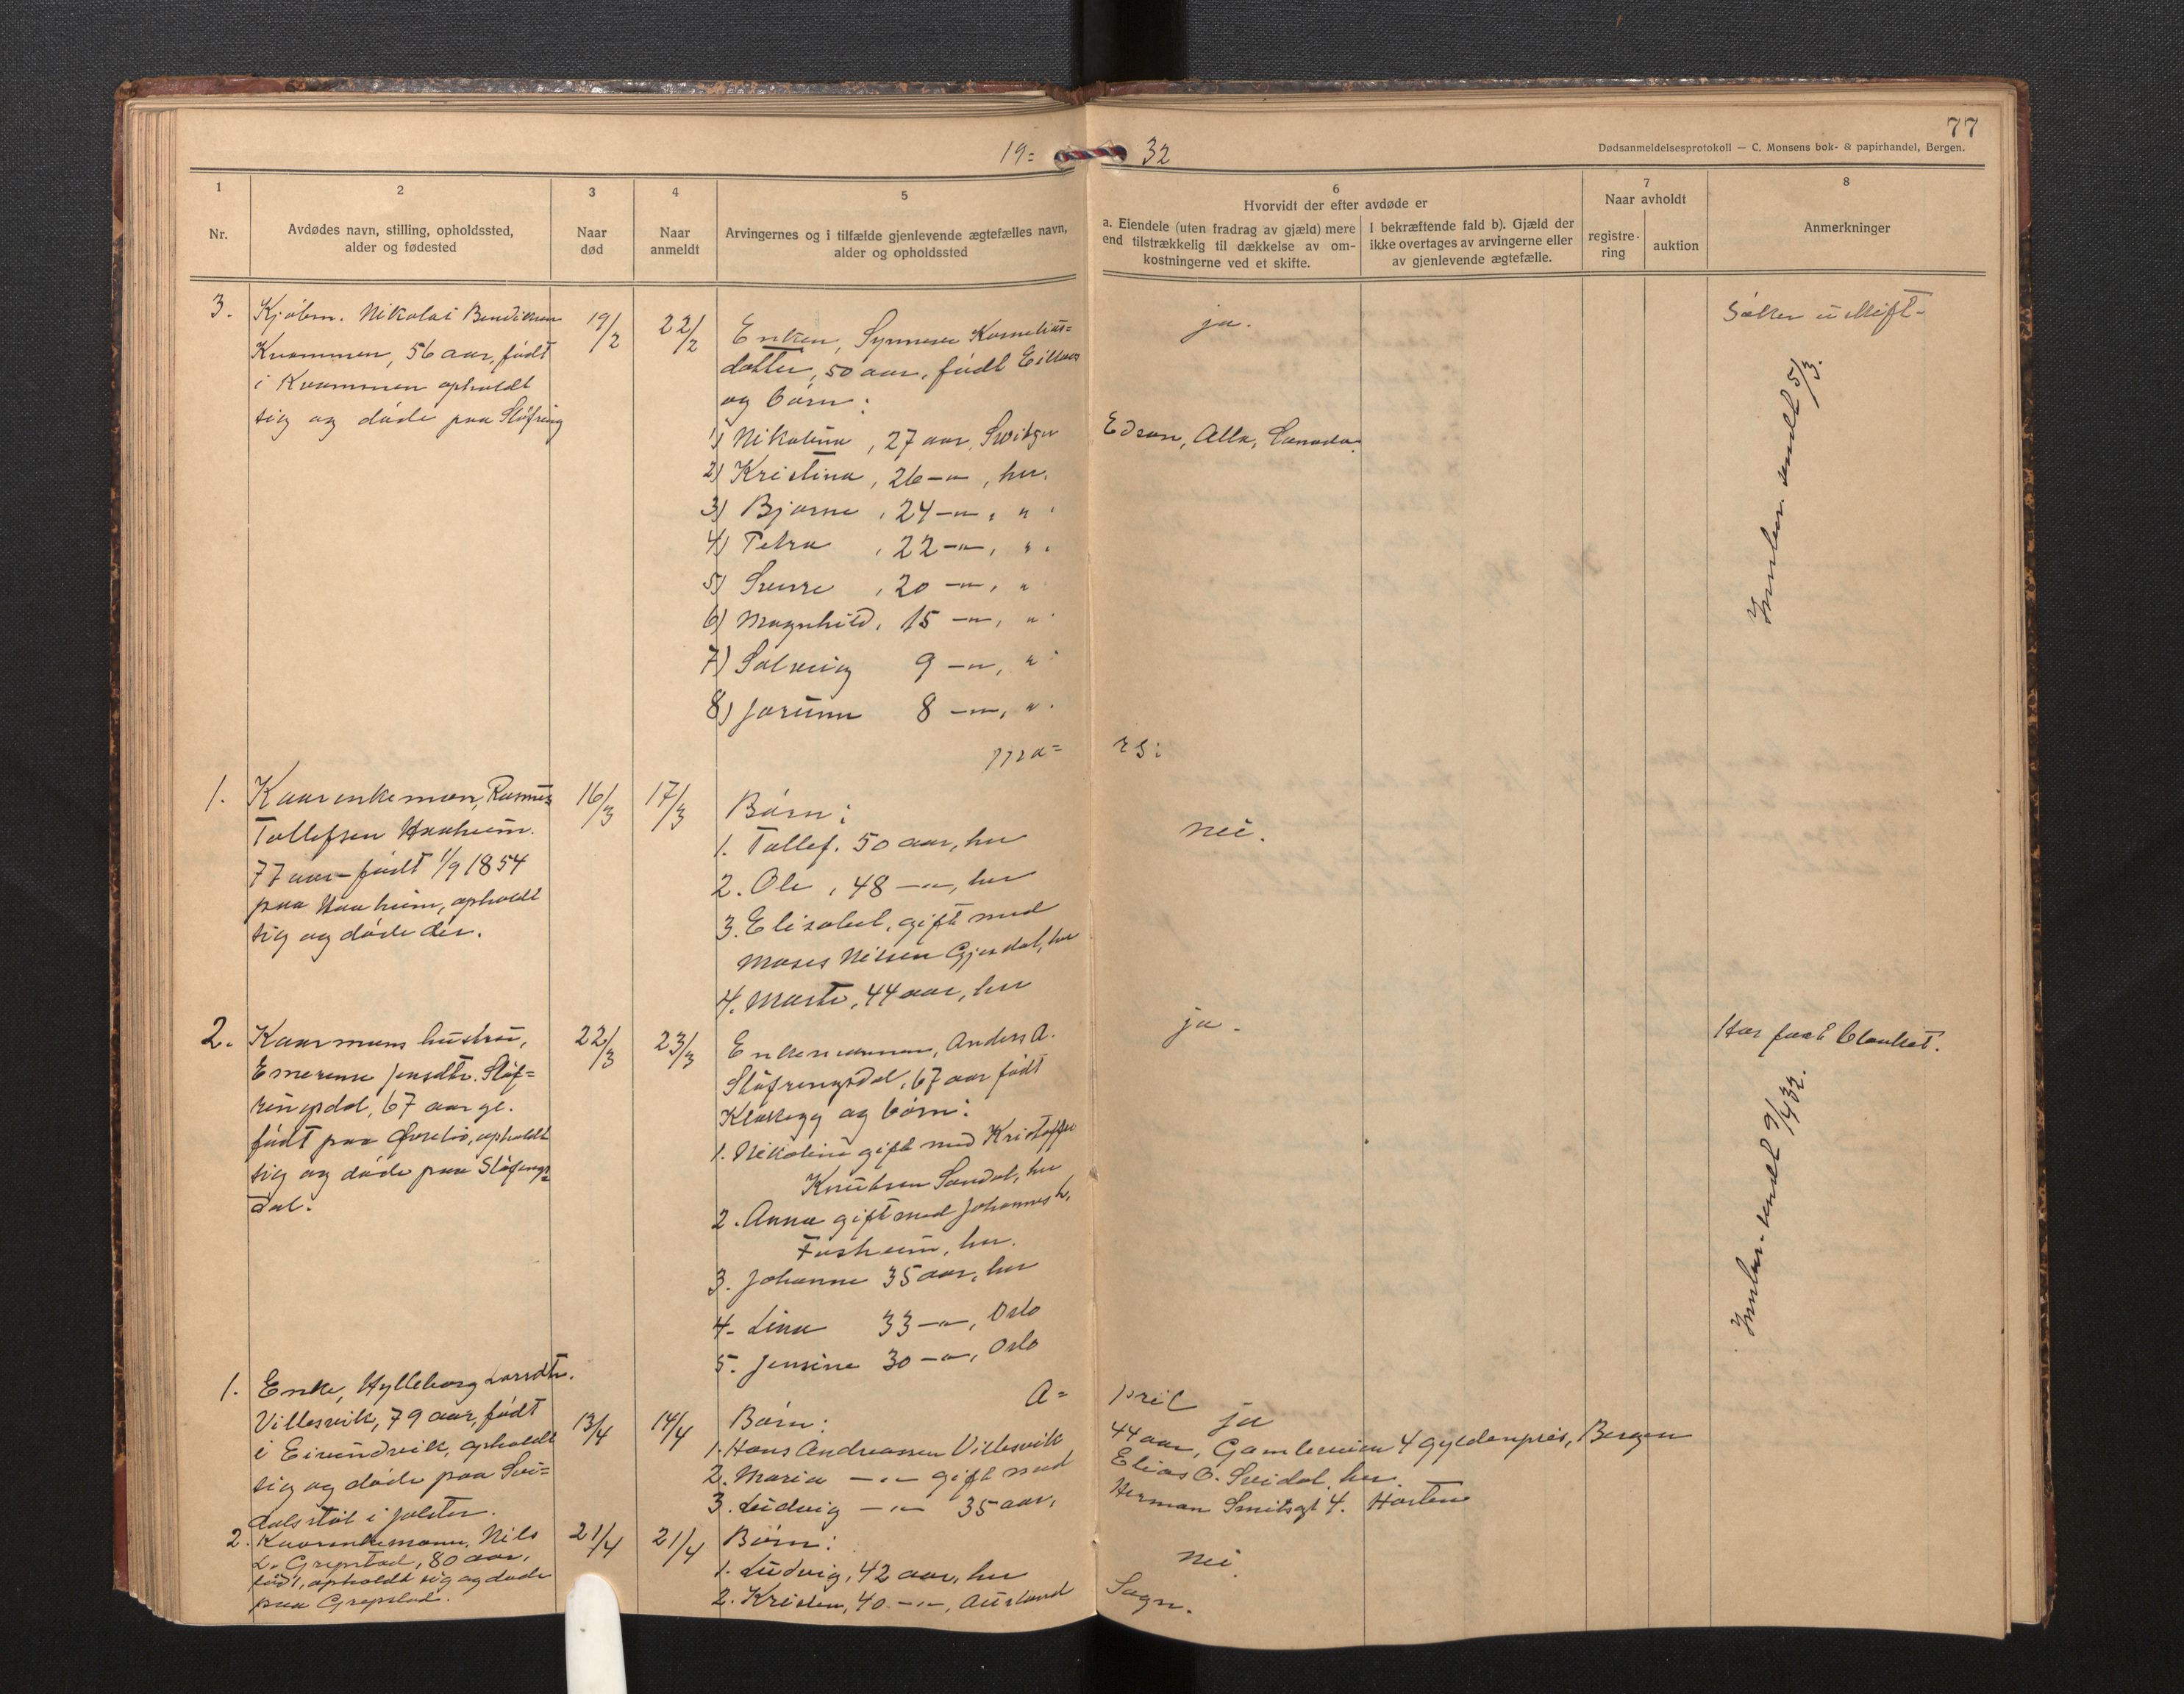 77
19= 32
Dødsanmeldelsesprotokoll — C. Monsens bok- & papirhandel, Bergen.
1
Nr.
2
Avdødes navn, stilling, opholdssted,
alder og fødested
3
Naar
død
4
Naar
anmeldt
5
Arvingernes og i tilfælde gjenlevende ægtefælles navn,
alder og opholdssted
6
Hvorvidt der efter avdøde er
a. Eiendele (uten fradrag av gjæld) mere
end tilstrækkelig til dækkelse av om-
kostningerne ved et skifte.
I bekræftende fald b). Gjæld der
ikke overtages av arvingerne eller
av gjenlevende ægtefælle.
7
Naar avholdt
registre-
ring
auktion
8
Anmerkninger
3.
Kjøbm. Nikolai Bendiksen
Kvammen, 56 aar, født
i Kvammen opholdt
sig og døde paa Sløfring
19/2
22/2
Enken, Synneve Kornelius=
datter, 50 aar, født
og børn:
1) Nikolina, 27 aar, Edson, Alta, Canada.
2) Kristina, 26 -"-, her.
3) Bjarne, 24 -"-, "
4) Petra, 22 -"-, "
5) Sverre, 20 -"-, "
6) Magnhild, 15 -"-, "
7) Solveig 9 -"-, "
8) Jorunn 8 -"-, "
ja.
Søker uskift.
sendt 5/3.
Ma= rs:
1.
Kaarenkeman, Rasmus
Tollefsen Haaheim.
77 aar - født 1/9 1854
paa Haaheim, opholdt
sig og døde der.
16/3
17/3
Børn:
1. Tollef, 50 aar, her
2. Ole, 48 -"-, her
3. Elisabet, gift med
Moses Nilsen Gjesdal, her
4. Marte, 44 aar, her
nei.
2.
Kaarmans hustru,
Emerense Jensdtr. Sløf=
ringsdal, 67 aar gl.
født paa opholdt
sig og døde paa Sløfrings=
dal.
22/3
23/3
Enkemannen, Anders A.
Sløfringsdal, 67 aar født
Klakegg og børn:
1. Nikoline gift med Kristoffer
Knutsen Sandal, her
2. Anna gift med Johannes
Fosheim, her.
3. Johanne 35 aar, her
4. Lina 33 -"-, Oslo
5. Jensine 30 -"-, Oslo
ja.
Har faat blanket.
sendt 9/4 32.
A= pril
1.
Enke, Hylleborg Larsdtr.
Villesvik, 79 aar, født
i Eivindvik, opholdt
sig og døde paa Svi=
dalsstøl i Jølster.
13/4
14/4
Børn: ja
1. Hans Andreassen Villesvik 44 aar, Gamleveien 4 Gyldenpris, Bergen
2. Maria -"- gift med Elias O. Svidal, her
3. Ludvig -"- 35 aar, Herman Smitsgt 4. Horten
2.
Kaarenkemann, Nils
L. Grepstad, 80 aar,
født, opholdt sig og døde
paa Grepstad.
21/4
21/4
Børn:
1. Ludvig, 42 aar, her
2. Kristen, 40 -"-, Aurland Sogn.
nei.